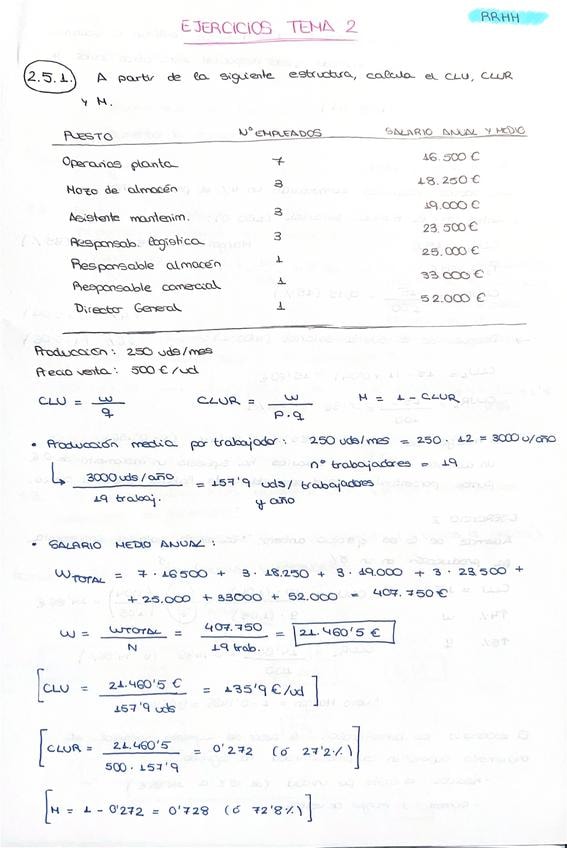 RRHH
EJERCICIOS TEMA 2
2.5.1. A partir de la siguiente estructura, calcula el CLU, CLUR
y M.
PUESTO Nº EMPLEADOS SALARIO ANUAL Y MEDIO
Operarios planta 7 16.500 €
Mozo de almacén 3 18.250 €
Asistente mantenim. 3 19.000 €
Responsab. logística 3 23.500 €
Responsable almacén 1 25.000 €
Responsable comercial 1 33.000 €
Director General 1 52.000 €
Producción: 250 uds/mes
Precio venta: 500 €/ud
CLU = w/q CLUR = w/p·q M = 1 - CLUR
• Producción media por trabajador: 250 uds/mes = 250 · 12 = 3000 u/año
nº trabajadores = 19
↳ 3000 uds/año / 19 trabaj. = 157'9 uds/trabajadores
y año
• SALARIO MEDIO ANUAL:
WTOTAL = 7 · 16500 + 3 · 18.250 + 3 · 19.000 + 3 · 23.500 +
+ 25.000 + 33000 + 52.000 = 407.750 €
W = WTOTAL/N = 407.750/19 trab. = 21.460'5 €
[CLU = 21.460'5 €/157'9 uds = 135'9 €/ud]
[CLUR = 21.460'5/500 · 157'9 = 0'272 (ó 27'2%)]
[M = 1 - 0'272 = 0'728 (ó 72'8%)]